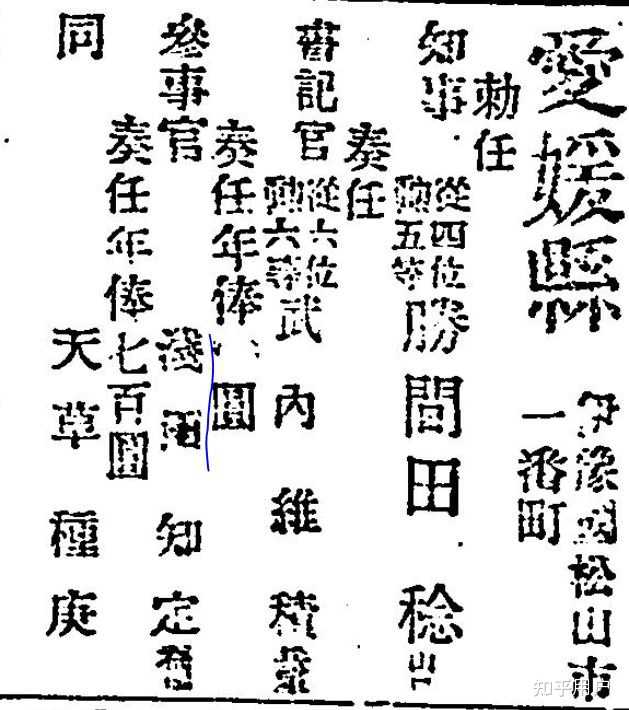 愛媛縣
伊豫國松山市
一番町
勅任
知事
從四位
勳五等
勝間田 稔
奏任
書記官
從六位
勳六等
武內維積
奏任年俸
圓
參事官
淺雨知定
奏任年俸七百圓
同
天草種庚
知乎用户